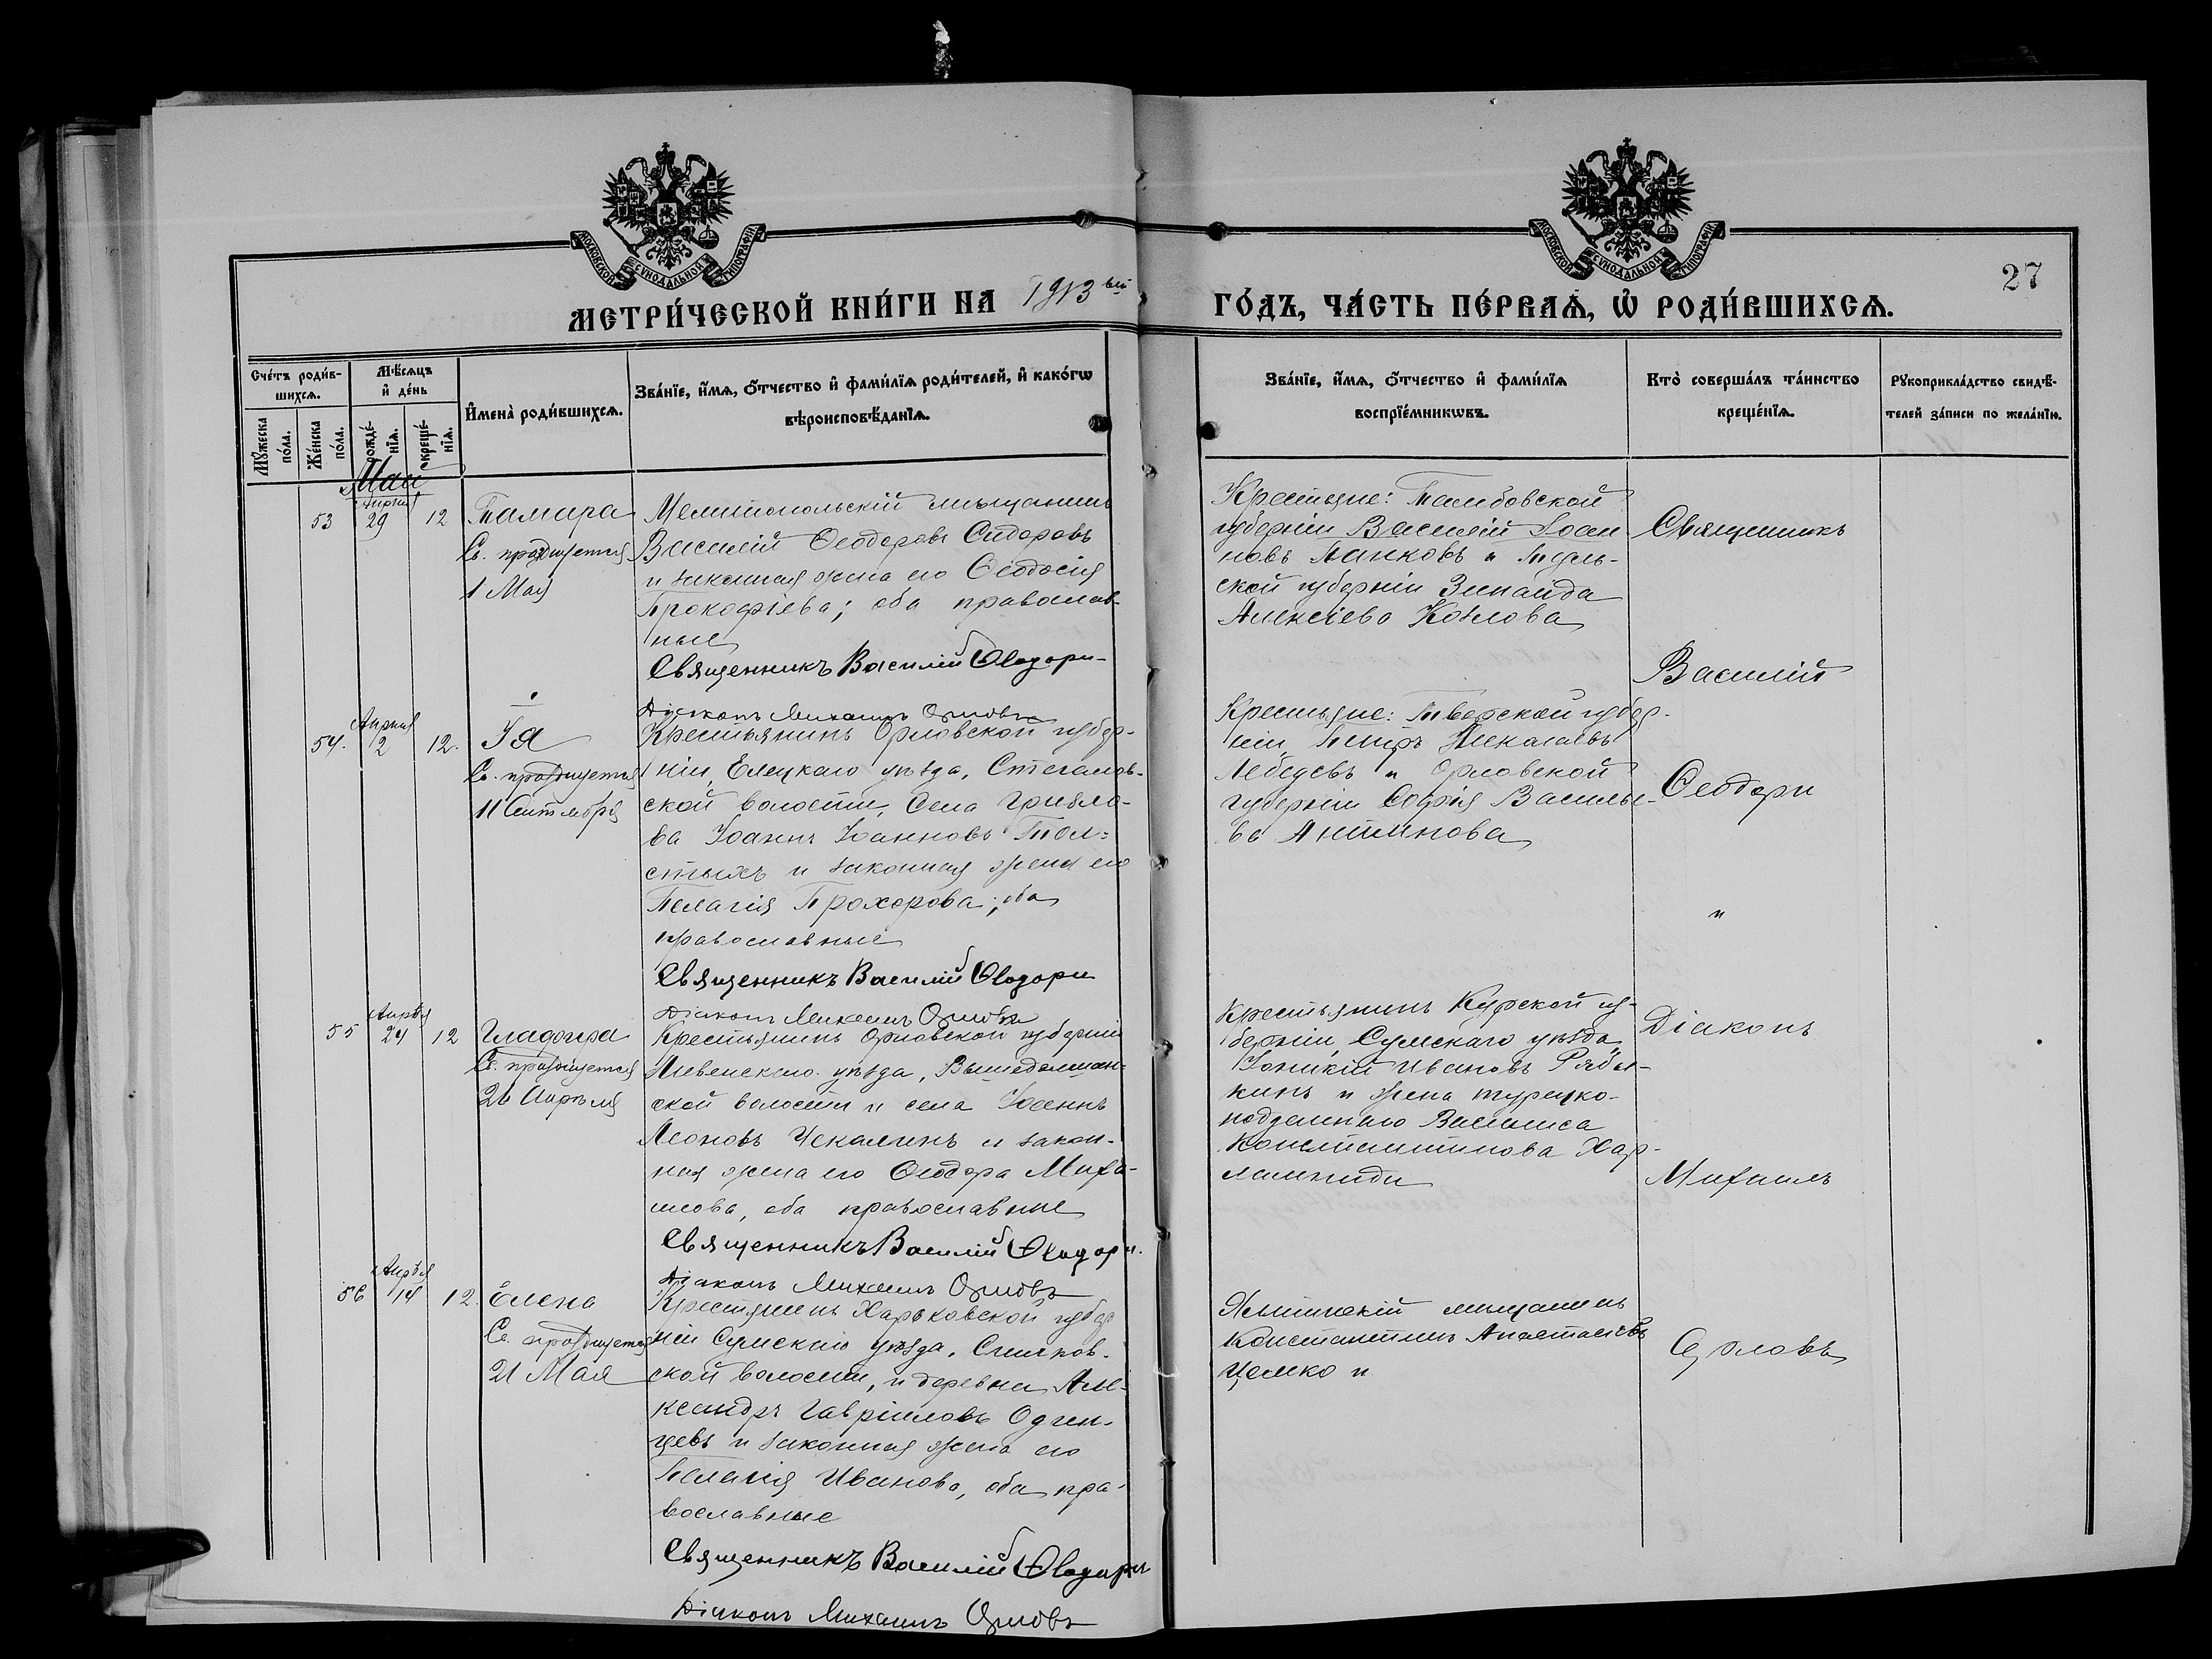 МОСКОВСКОЙ СУНОДАЛЬНОЙ ТИПОГРАФІИ
МОСКОВСКОЙ СУНОДАЛЬНОЙ ТИПОГРАФІИ
27
МЕТРИ́ЧЕСКОЙ КНИ́ГИ НА 1913 ый ГО́ДЪ, ЧА́СТЬ ПЕ́РВАѦ, Ѡ҆ РОДИ́ВШИХСѦ.
Сче́тъ роди́в-
шихсѧ.
Мꙋ́жеска
по́ла.
Же́нска
по́ла.
Мѣ́сѧцъ
и҆ де́нь
рожде́-
нїѧ.
креще́-
нїѧ.
И҆мена̀ роди́вшихсѧ.
Зва́нїе, и҆́мѧ, ѻ҆́тчество и҆ фами́лїѧ роди́телей, и҆ како́гѡ
вѣроисповѣ́данїѧ.
Зва́нїе, и҆́мѧ, ѻ҆́тчество и҆ фами́лїѧ
воспрїе́мникѡвъ.
Кто̀ соверша́лъ та́инство
креще́нїѧ.
Рꙋкоприкла́дство свидѣ́-
телей за́писи по жела́нїю.
Май
53
Апрѣля
29
12
Тамара
Св. празднуется
1 Мая
Мелитопольскій мѣщанинъ
Василій Ѳеодоровъ Сидоровъ
и законная жена его Ѳеодосія
Прокофіева; оба православ-
ные
Священникъ Василій Ѳеодори
Діаконъ Михаилъ Орловъ
Крестьяне: Тамбовской
губерніи Василій Іоан
новъ Панковъ и Туль-
ской губерніи Зинаида
Алексіева Козлова
Священникъ
Василій
Ѳеодори
54.
Апрѣля
2
12.
Ія
Св. празднуется
11 Сентября
Крестьянинъ Орловской губер-
ніи, Елецкаго уѣзда, Стегалов-
ской волости, Села
Іоаннъ Іоанновъ Тол-
стыхъ и законная жена его
Пелагія Прохорова; оба
православные
Священникъ Василій Ѳеодори
Діаконъ Михаилъ Орловъ
Крестьяне: Тверской губер-
ніи, Петръ Николаевъ
Лебедевъ и Орловской
губерніи Софія Василье-
ва Антипова
и
55
Апрѣля
24
12
Глафира
Св. празднуется
26 Апрѣля
Крестьянинъ Орловской губерніи
Ливенскаго уѣзда,
ской волости и села Іоаннъ
Леоновъ Чекалинъ и закон-
ная жена его Ѳеодора Михаи-
лова, оба православные
Священникъ Василій Ѳеодори.
Діаконъ Михаилъ Орловъ
Крестьянинъ Курской гу-
берніи, Сумскаго уѣзда,
Іоникій Ивановъ Рябы-
кинъ и жена турецко-
подданнаго Василиса
Константинова Хар-
лампиди
Діаконъ
Михаилъ
Орловъ
56
Апрѣля
14
12.
Елена
Св. празднуется
21 Мая
Крестьянинъ Харьковской губер
ніи Сумскаго уѣзда,
ской волости, и деревни Але-
ксандръ Гавріиловъ Один-
цевъ и законная жена его
Пелагія Иванова, оба пра-
вославные
Священникъ Василій Ѳеодори
Діаконъ Михаилъ Орловъ
Ялтинскій мѣщанинъ
Константинъ Анастасіевъ
Цемко и